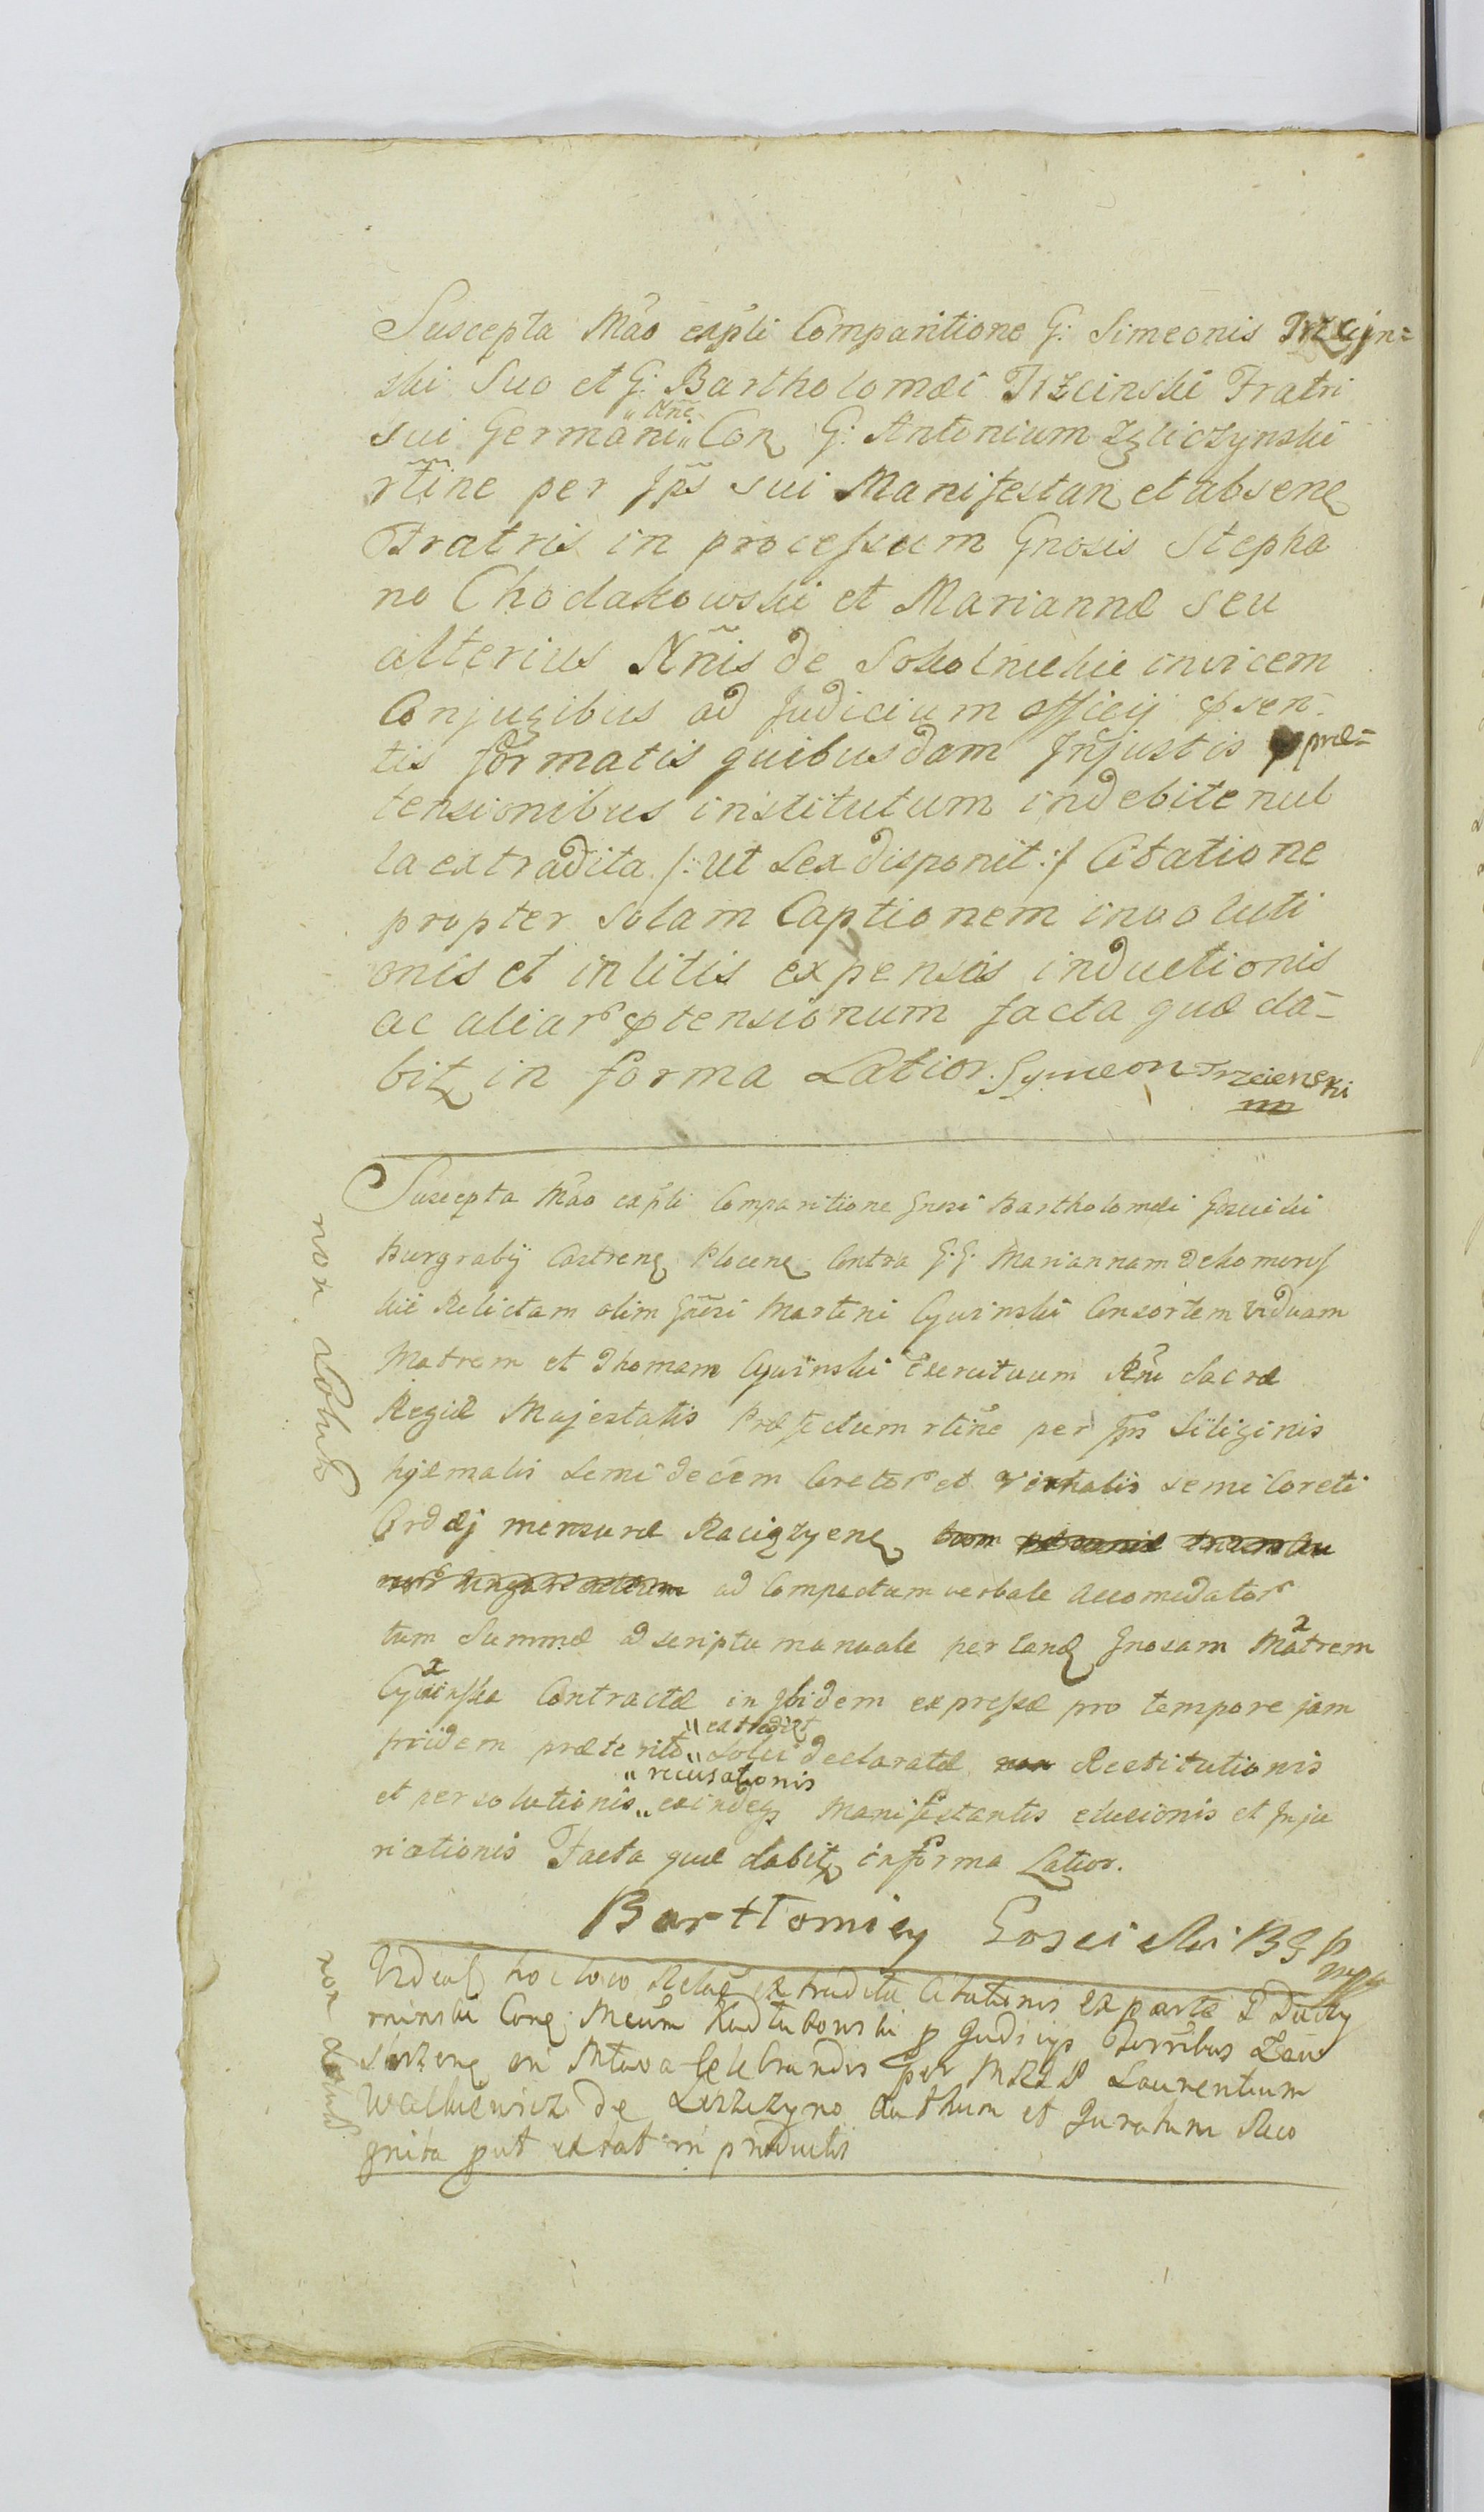 Suscepta Mão expłi Comparitione G: Simeonis Trzcyn=
ski Suo et G: Bartholomæi Trzcinski Fratri
sui Germani „Nnē„ Con G: Antonium Zgliczynski
rtīne per Jp̃s sui Manifestan et absenę
Fratris in processum Gnosis Stepha
no Chodakowski et Mariannæ seu
alterius Nñis de Sokolnickie invicem
Conjugibus ad Judicium officij p̄sen-
tis formatis quibusdam Jnjustis præ=
tensionibus institutum indebite nul
la extradita /: ut Lex disponit :/ Citatione
propter solam Captionem involuti
onis et in litis expensis inductionis
ac aliar p̄tensionum facta quæ da-
bit in forma Latior. Symeon Trzcienski
mp
Suscepta Mão expłi Comparitione Gnosi Bartholomæi Goscicki
Burgrabij Castrenę Plocenę Contra G.G. Mariannam de Komorows
kie Relictam olim Gnosi Martini Cywinski Consortem viduam
Matrem et Thomam Cywinski Exercituum Rñi Sacræ
Regiæ Majestatis Præfectum rtīne per Jpñs Siliginis
hyemalis semi decem Coretor et semi Coreti
Ordej mensuræ Raciązyenę
ad Compactum verbale Accomodator
tum Summæ ad scriptu manuale per Eandę Gnosam Matrem
Cywinska Contractæ in Jbidem expressæ pro tempore jam
pridem præterito „extradict„ Solui declaratæ Restitutionis
et persolutionis „recusationis„ exindeqz Manifestantis elusionis et Inju
riationis Facta quæ dabit in forma Latior.
Barttomiey Goscicki BGP mpp
Videat hoc loco Relaõ extraditæ Citationis ex parte G Duczy
minski Conę Meum Kudłukowski p Judicijs Terribus Zaw
skrzenę in Mława Celebrandis per MRLP Laurentium
Walkiewicz de Luszczyno Authum et Juratum Reco
gnita put extat in productis
non Solut
non Solut